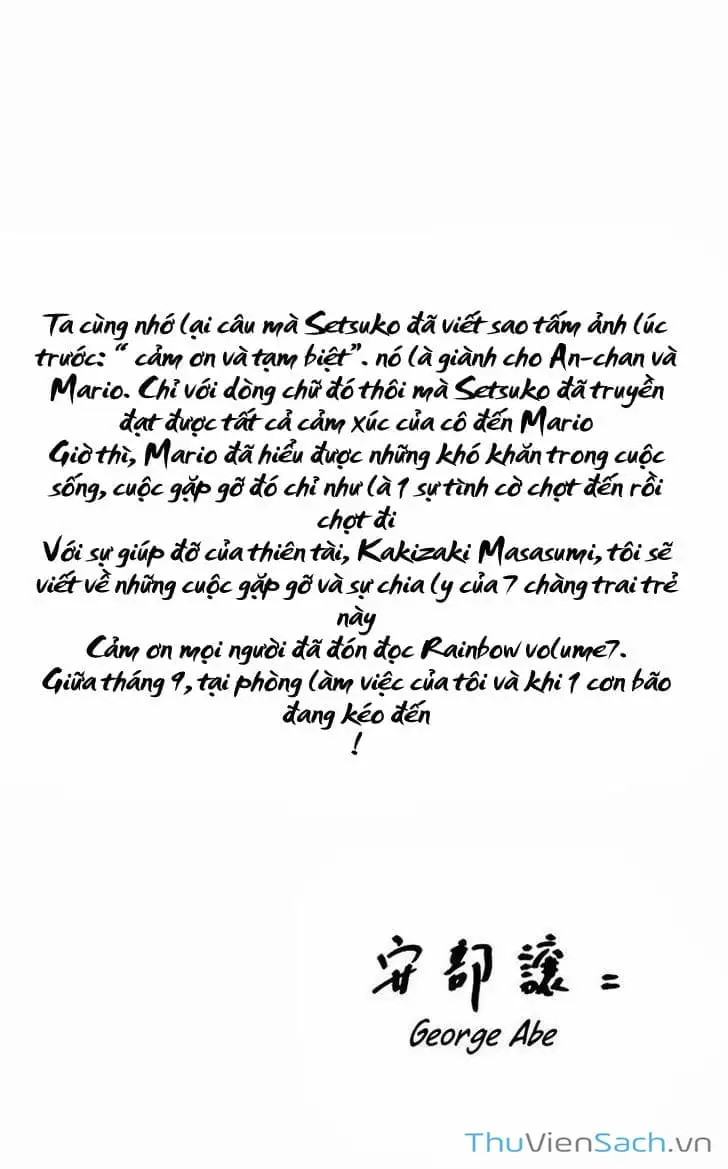 Ta cùng nhớ lại câu mà Setsuko đã viết sao tấm ảnh lúc
trước: “ cảm ơn và tạm biệt”. nó là giành cho An-chan và
Mario. Chỉ với dòng chữ đó thôi mà Setsuko đã truyền
đạt được tất cả cảm xúc của cô đến Mario
Giờ thì, Mario đã hiểu được những khó khăn trong cuộc
sống, cuộc gặp gỡ đó chỉ như là 1 sự tình cờ chợt đến rồi
chợt đi
Với sự giúp đỡ của thiên tài, Kakizaki Masasumi, tôi sẽ
viết về những cuộc gặp gỡ và sự chia ly của 7 chàng trai trẻ
này
Cảm ơn mọi người đã đón đọc Rainbow volume7.
Giữa tháng 9, tại phòng làm việc của tôi và khi 1 cơn bão
đang kéo đến
!
安部譲二
George Abe
ThuVienSach.vn